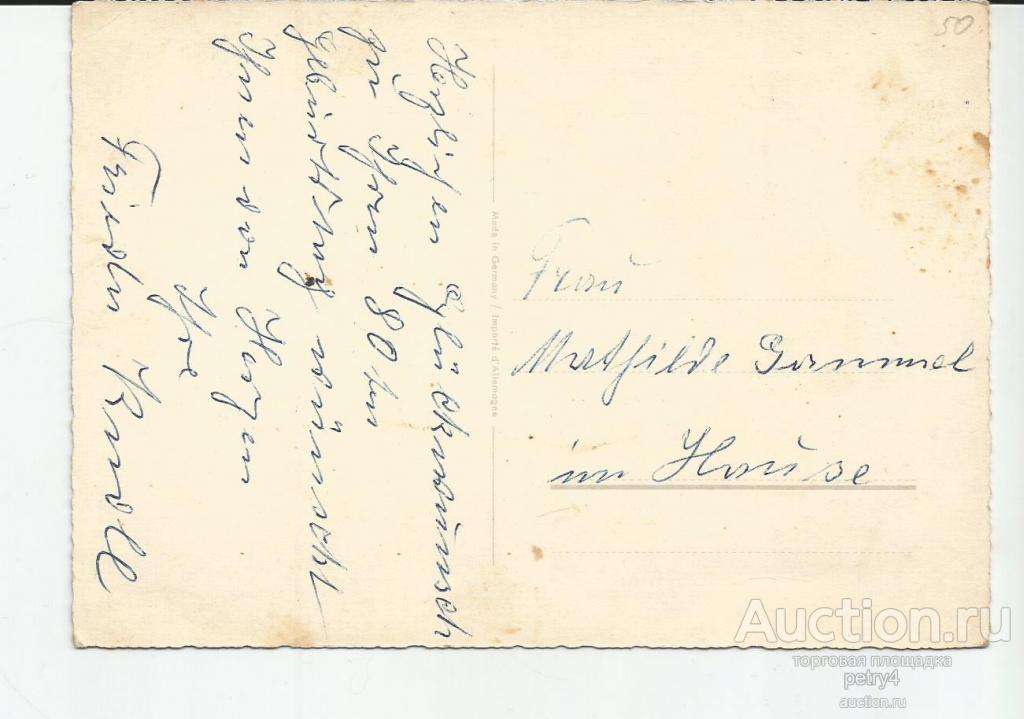 Herzlichen Glückwunsch
zu Ihrem 80ten
Geburtstag wünscht
Ihnen von Herzen
Ihre
Made in Germany / Importé d'Allemagne
50
Frau
Mathilde
im Hause
Auction.ru
торговая площадка
petry4
auction.ru